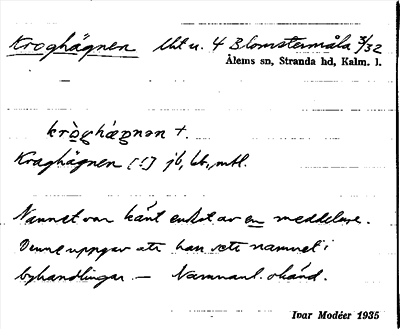 Kroghägnen lht u. 4 Blomstermåla 3/32
Ålems sn, Stranda hd, Kalm. l.
kròghägnən +.
Kroghägnen [!] jb, lb, mtl.
Namnet var känt endast av en meddelare.
Denne uppgav att han sett namnet i
byhandlingar. — Namnanl. okänd.
Ivar Modéer 1935